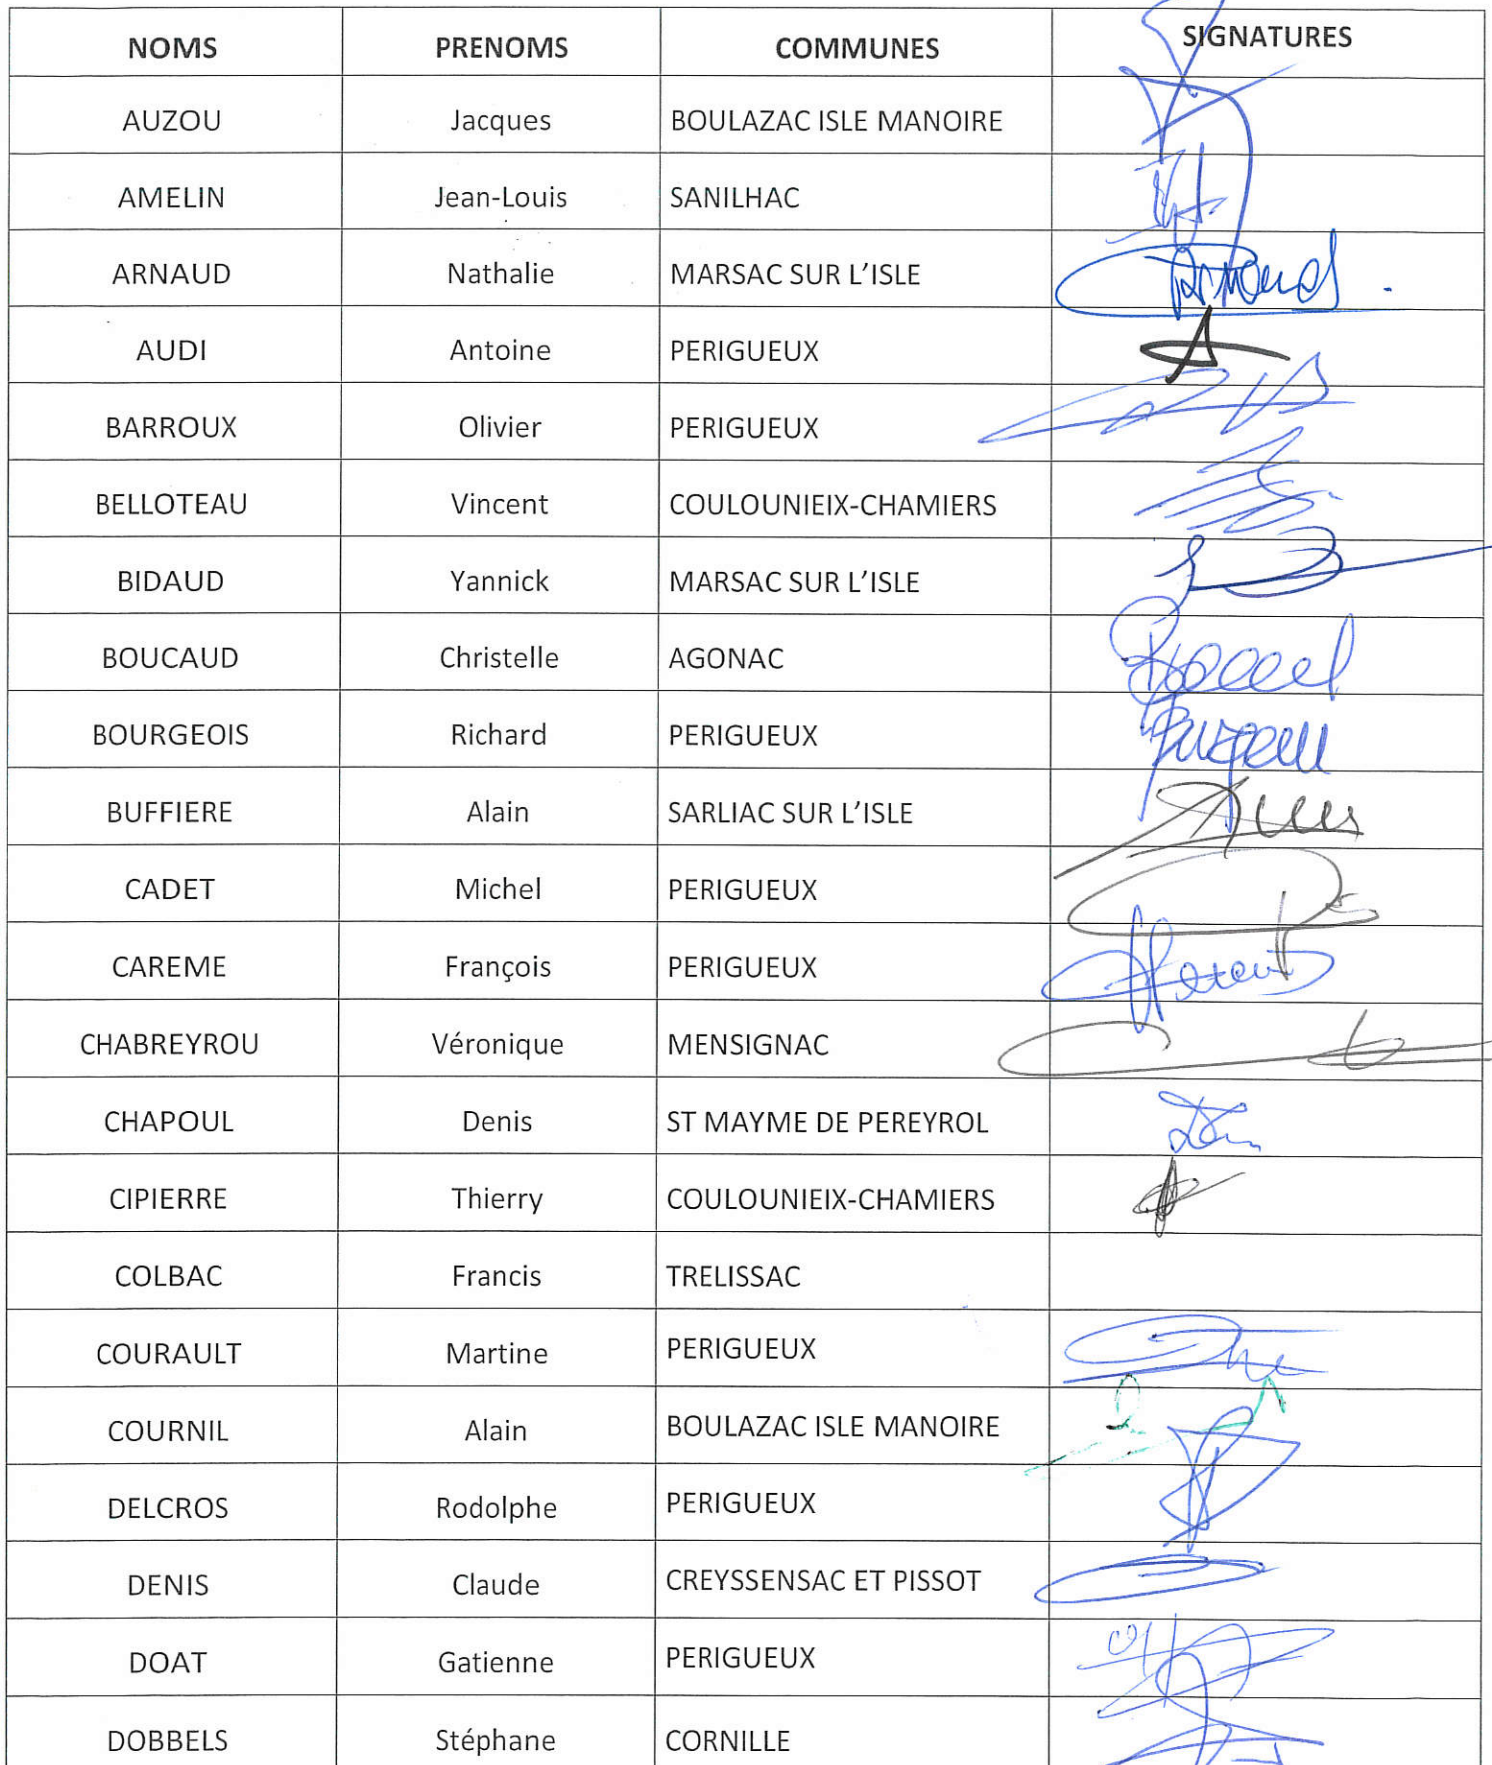 NOMS PRENOMS COMMUNES SIGNATURES
AUZOU Jacques BOULAZAC ISLE MANOIRE
AMELIN Jean-Louis SANILHAC
ARNAUD Nathalie MARSAC SUR L'ISLE
AUDI Antoine PERIGUEUX
BARROUX Olivier PERIGUEUX
BELLOTEAU Vincent COULOUNIEIX-CHAMIERS
BIDAUD Yannick MARSAC SUR L'ISLE
BOUCAUD Christelle AGONAC
BOURGEOIS Richard PERIGUEUX
BUFFIERE Alain SARLIAC SUR L'ISLE
CADET Michel PERIGUEUX
CAREME François PERIGUEUX
CHABREYROU Véronique MENSIGNAC
CHAPOUL Denis ST MAYME DE PEREYROL
CIPIERRE Thierry COULOUNIEIX-CHAMIERS
COLBAC Francis TRELISSAC
COURAULT Martine PERIGUEUX
COURNIL Alain BOULAZAC ISLE MANOIRE
DELCROS Rodolphe PERIGUEUX
DENIS Claude CREYSSENSAC ET PISSOT
DOAT Gatienne PERIGUEUX
DOBBELS Stéphane CORNILLE